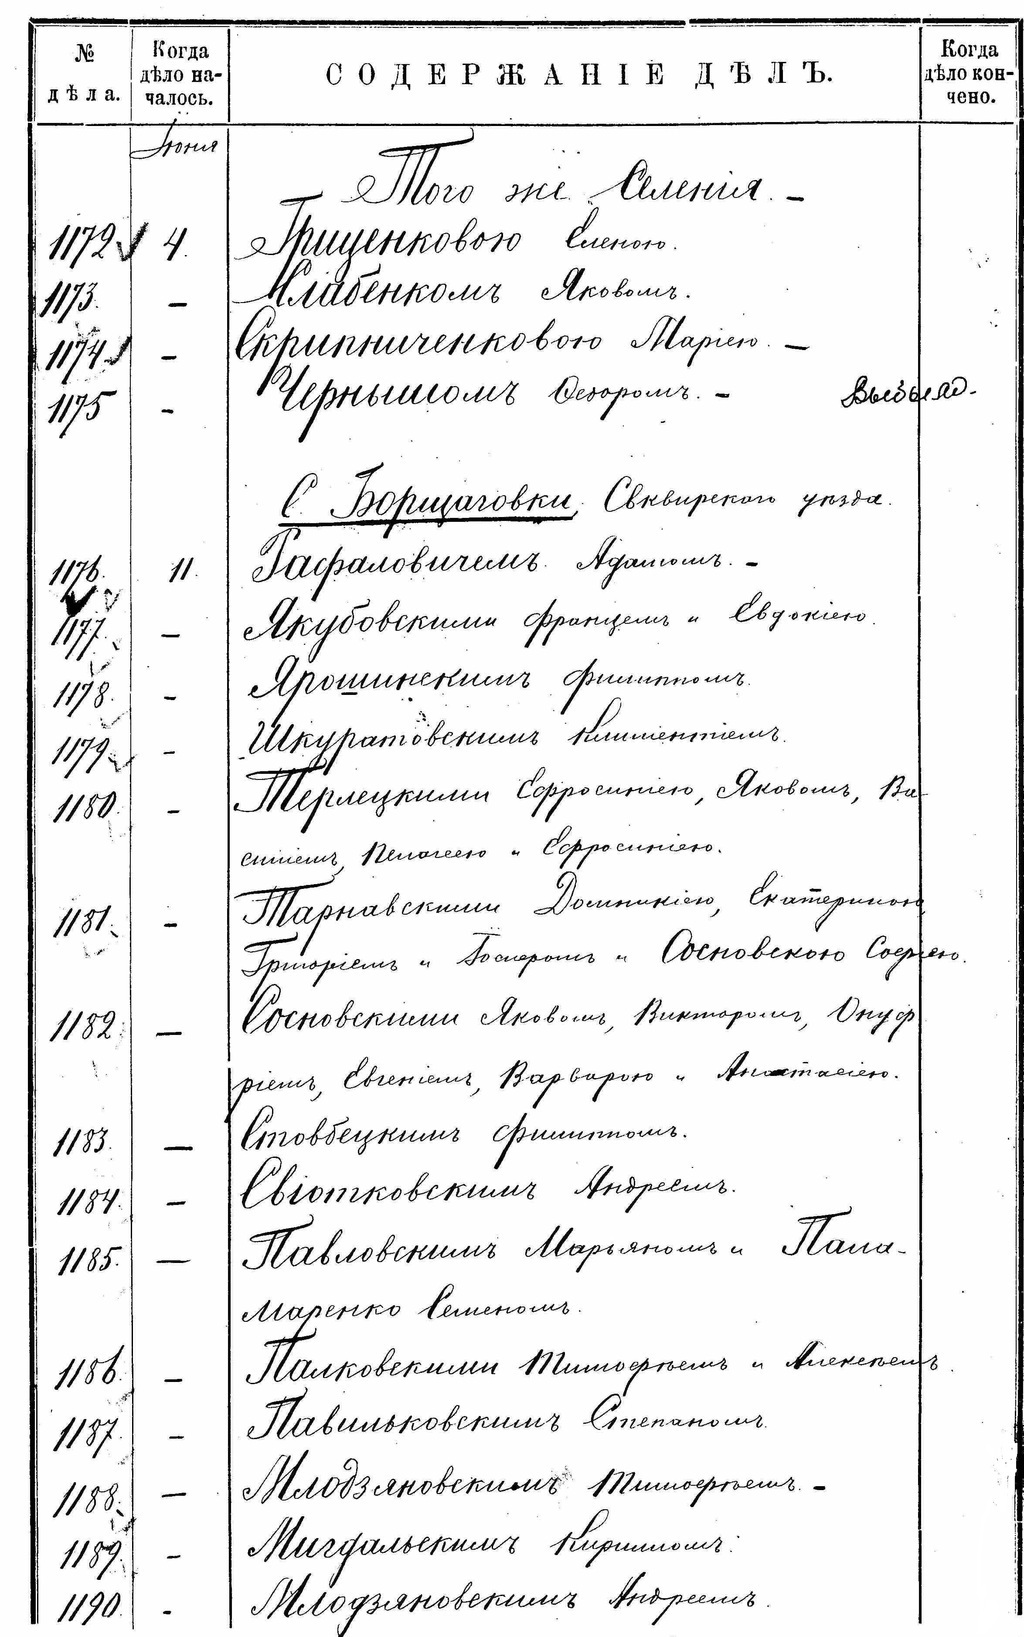 № дѣла. Когда дѣло началось. СОДЕРЖАНІЕ ДѢЛЪ. Когда дѣло кончено.
Іюня
— Того же Селенія. —
1172 4. Гриценковою Еленою.
1173. — Хлабенкомъ Яковомъ.
1174 — Скрипниченковою Маріею. —
1175 — Чернышомъ Ѳедоромъ. —
С. Борщаговки, Сквирскаго уѣзда.
1176. 11. Рафаловичемъ Адамомъ. —
1177. — Якубовскими Францемъ и Евдокіею.
1178. — Ярошинскимъ Филиппомъ.
1179. — Шкуратовскимъ Климентіемъ.
1180. — Терлецкими Ефросиніею, Яковомъ, Ва-
силіемъ, Пелагеею и Ефросиніею.
1181. — Тарнавскими Домникіею, Екатериною
Григоріемъ и Госперомъ и Сосновскою Софіею.
1182. — Сосновскими Яковомъ, Викторомъ, Онуф
ріемъ, Евгеніемъ, Варварою и Анастасіею.
1183. — Стовбецкимъ Филиппомъ.
1184. — Свіотковскимъ Андреемъ.
1185. — Павловскимъ Марьяномъ и Пана-
маренко Семеномъ.
1186. — Палковскими Тимофѣемъ и Алексѣемъ.
1187. — Павильковскимъ Степаномъ.
1188. — Млодзяновскимъ Тимофѣемъ. —
1189. — Мигдальскимъ Кирилломъ.
1190. — Млодзяновскимъ Андреемъ.